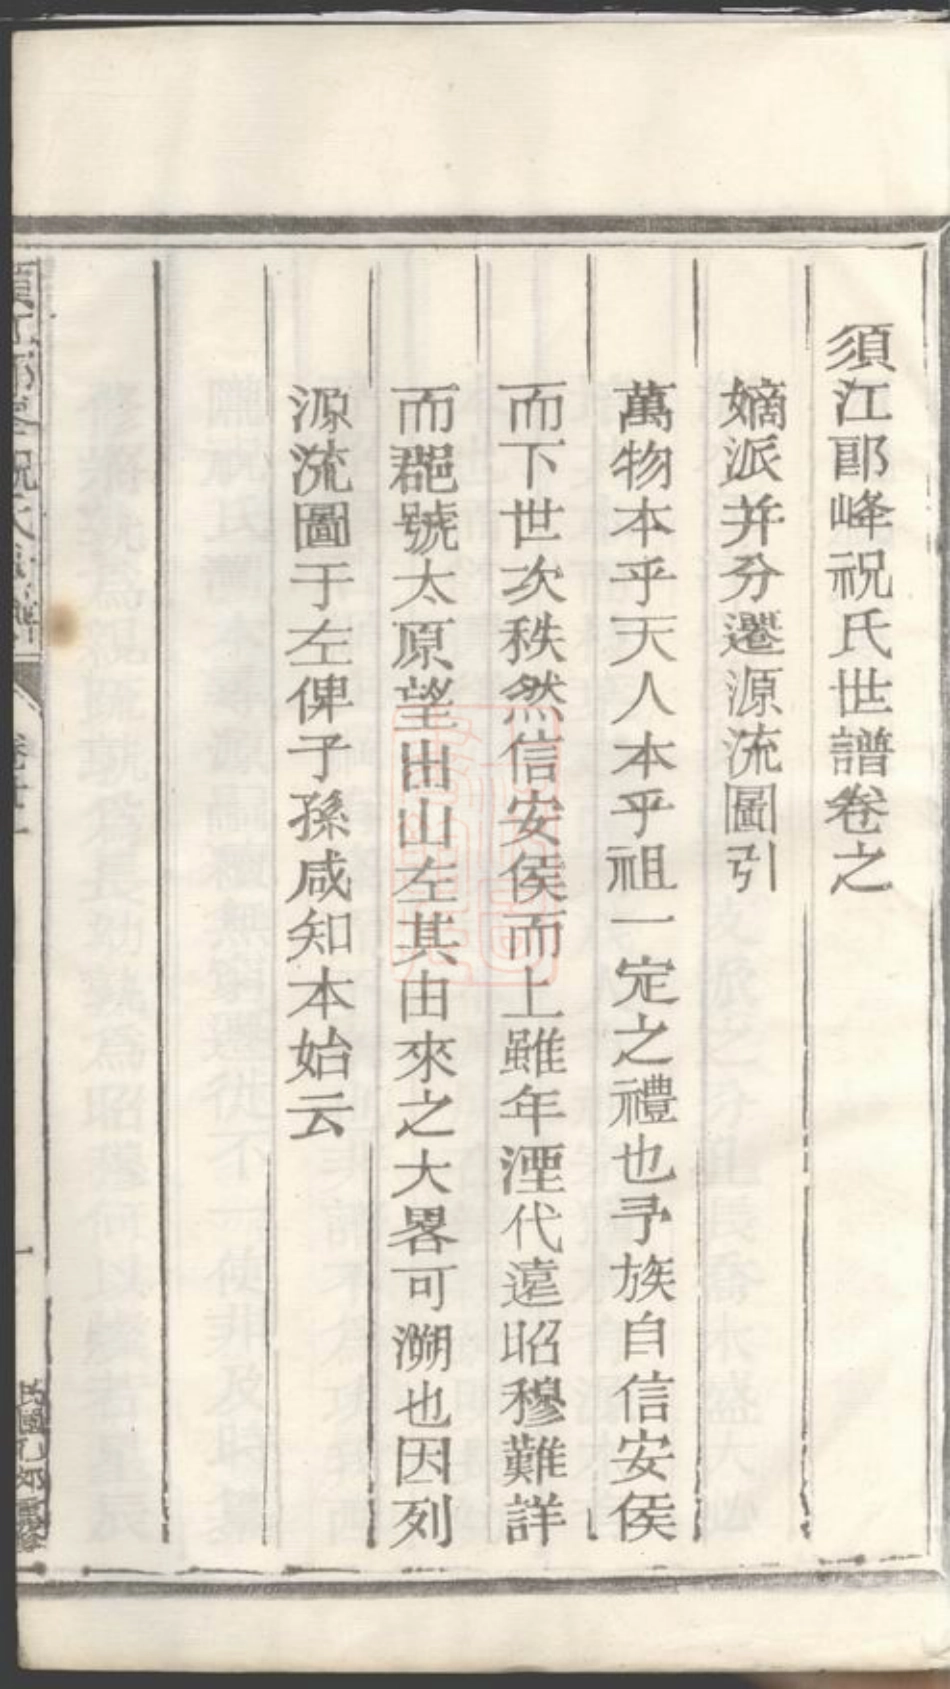 須江郎峰祝氏世譜卷之
嫡派并分遷源流圖引
萬物本乎天人本乎祖一定之禮也予族自信安侯
而下世次秩然信安侯而上雖年湮代遠昭穆難詳
而郡號太原望出山左其由來之大畧可溯也因列
源流圖于左俾子孫咸知本始云
民國乙卯重修